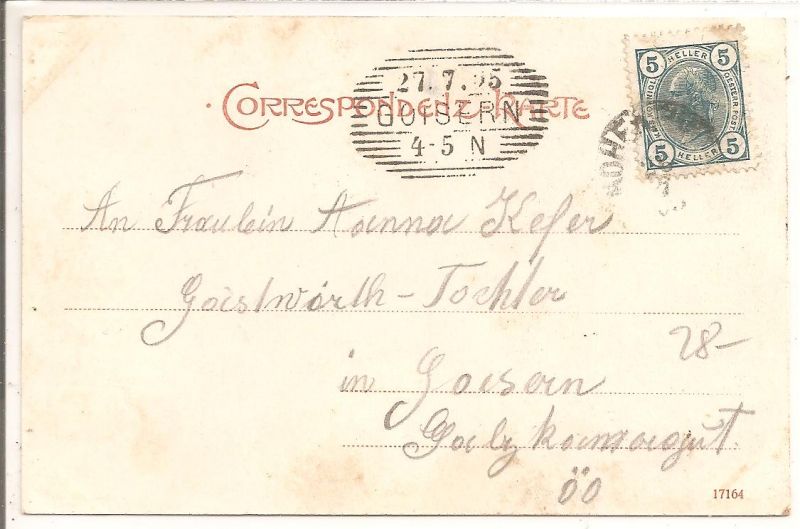 27.7.05
CORRESPONDENZ-KARTE
GOISERN
4-5 N
5 HELLER 5
KAIS. KÖNIGL. OESTERR. POST
5 HELLER 5
An Fräulein Hanna Kefer
Gastwirth-Tochter
28-
in Goisern
Salzkammergut
ÖÖ
17164